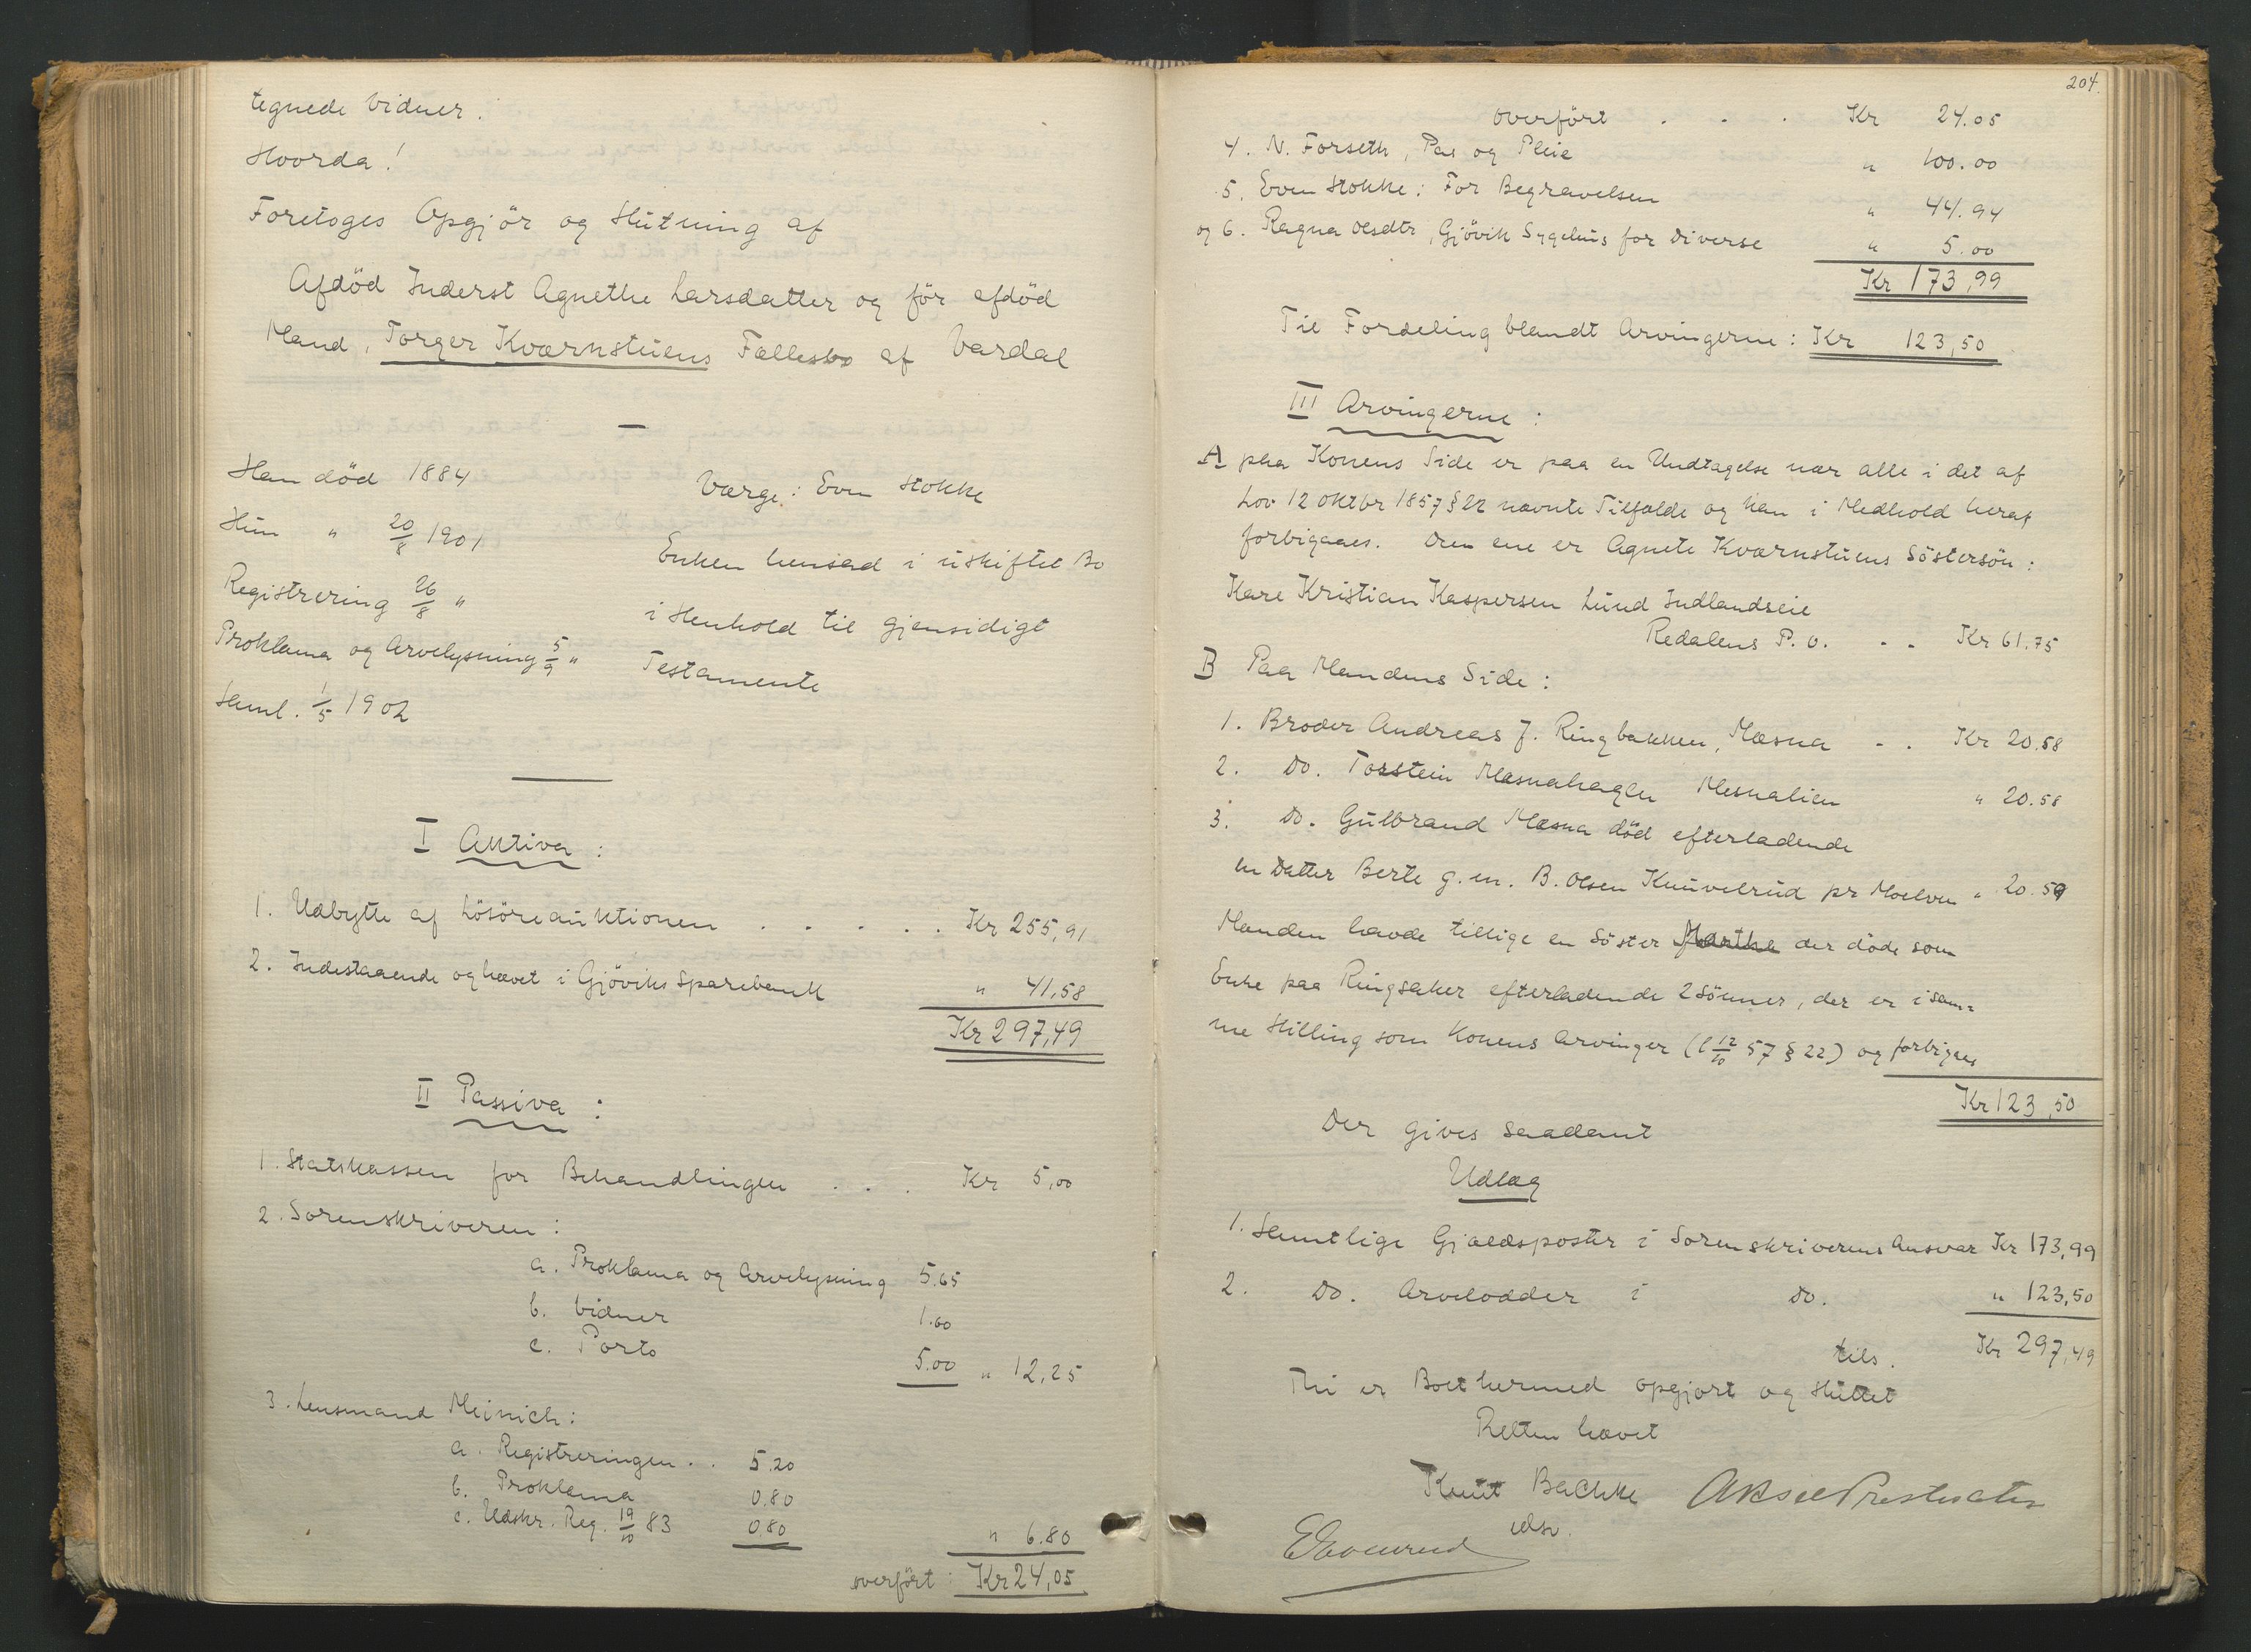 tegnede Vidner.
Hvorda!
Foretoges Opgjör og Slutning af
Afdöd Inderst Agnethe Larsdatter og för afdöd
Mand, Torger Kværnstuens Fællesbo af Vardal
Han död 1884
Værge: Even Stokke
Hun " 20/8 1901
Enken hensad i uskiftet Bo
Registrering 26/8 "
i Henhold til gjensidigt
Proklama og Arvelysning 5/9 "
Testamente
Saml. 1/5 1902
I Aktiva:
1. Udbytte af Lösöreauktionen . . . . . Kr 255,91
2. Indestaaende og hævet i Gjöviks Sparebank " 41,58
Kr 297,49
II Passiva:
1. Statskassen for Behandlingen . . . Kr 5,00
2. Sorenskriveren:
a. Proklama og Arvelysning 5.65
b. Vidner 1.60
c. Porto 5.00 " 12,25
3. Lensmand Meinich:
a. Registreringen . . 5.20
b. Proklama 0.80
c. Udskr. Reg. 19/10 83 0.80 " 6.80
overfört: Kr 24,05
204.
overfört . . . Kr 24.05
4. N. Forseth, Pas og Pleie " 100.00
5. Even Stokke: For Begravelsen " 44.94
og 6. Ragna Olsdtr, Gjövik Sygehus for Diverse " 5.00
Kr 173,99
Til Fordeling blandt Arvingerne: Kr 123,50
III Arvingerne:
A paa Konens Side er paa en Undtagelse nær alle i det af
Lov 12 Oktbr 1857 § 22 nævnte Tilfælde og kan i Medhold heraf
forbigaaes. Den ene er Agnete Kværnstuens Söstersön:
Kare Kristian Kaspersen Lund Indlandseie
Redalens P. O. . . Kr 61.75
B Paa Mandens Side:
1. Broder Andreas J. Ringbakken, Mæsna . . Kr 20.58
2. Do. Torstein Mæsnahagen Mesnalien " 20.58
3. Do. Gulbrand Mæsna död efterladende
en Datter Berte g. m. B. Olsen Knuvelrud pr Moelven " 20.59
Manden havde tillige en Söster Marthe der döde som
Enke paa Ringsaker efterladende 2 Sönner, der er i sam=
me Stilling som Konens Arvinger (l 12/10 57 § 22) og forbigaaes
Kr 123,50
Der gives saadant
Udlæg
1. Samtlige Gjældsposter i Sorenskriverens Ansvar Kr 173,99
2. Do. Arvelodder i Do. " 123,50
tils. Kr 297,49
Thi er Boet hermed opgjort og sluttet
Retten hævet
Knut Bachke